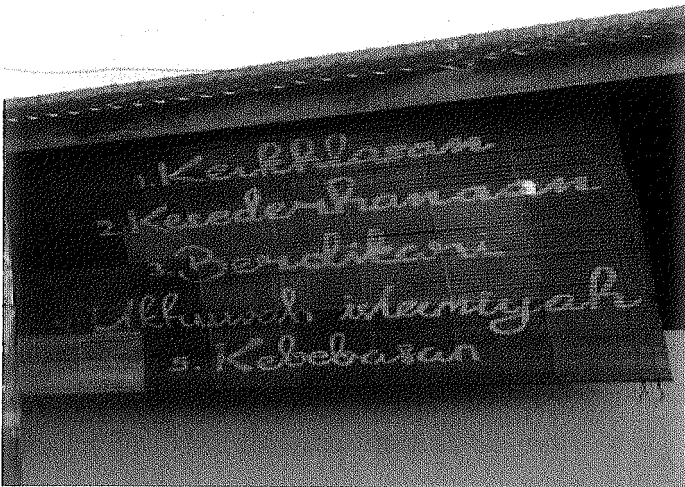 1. Keikhlasan
2. Kesederhanaan
3. Berdikari
Ukhuwah islamiyah
5. Kebebasan